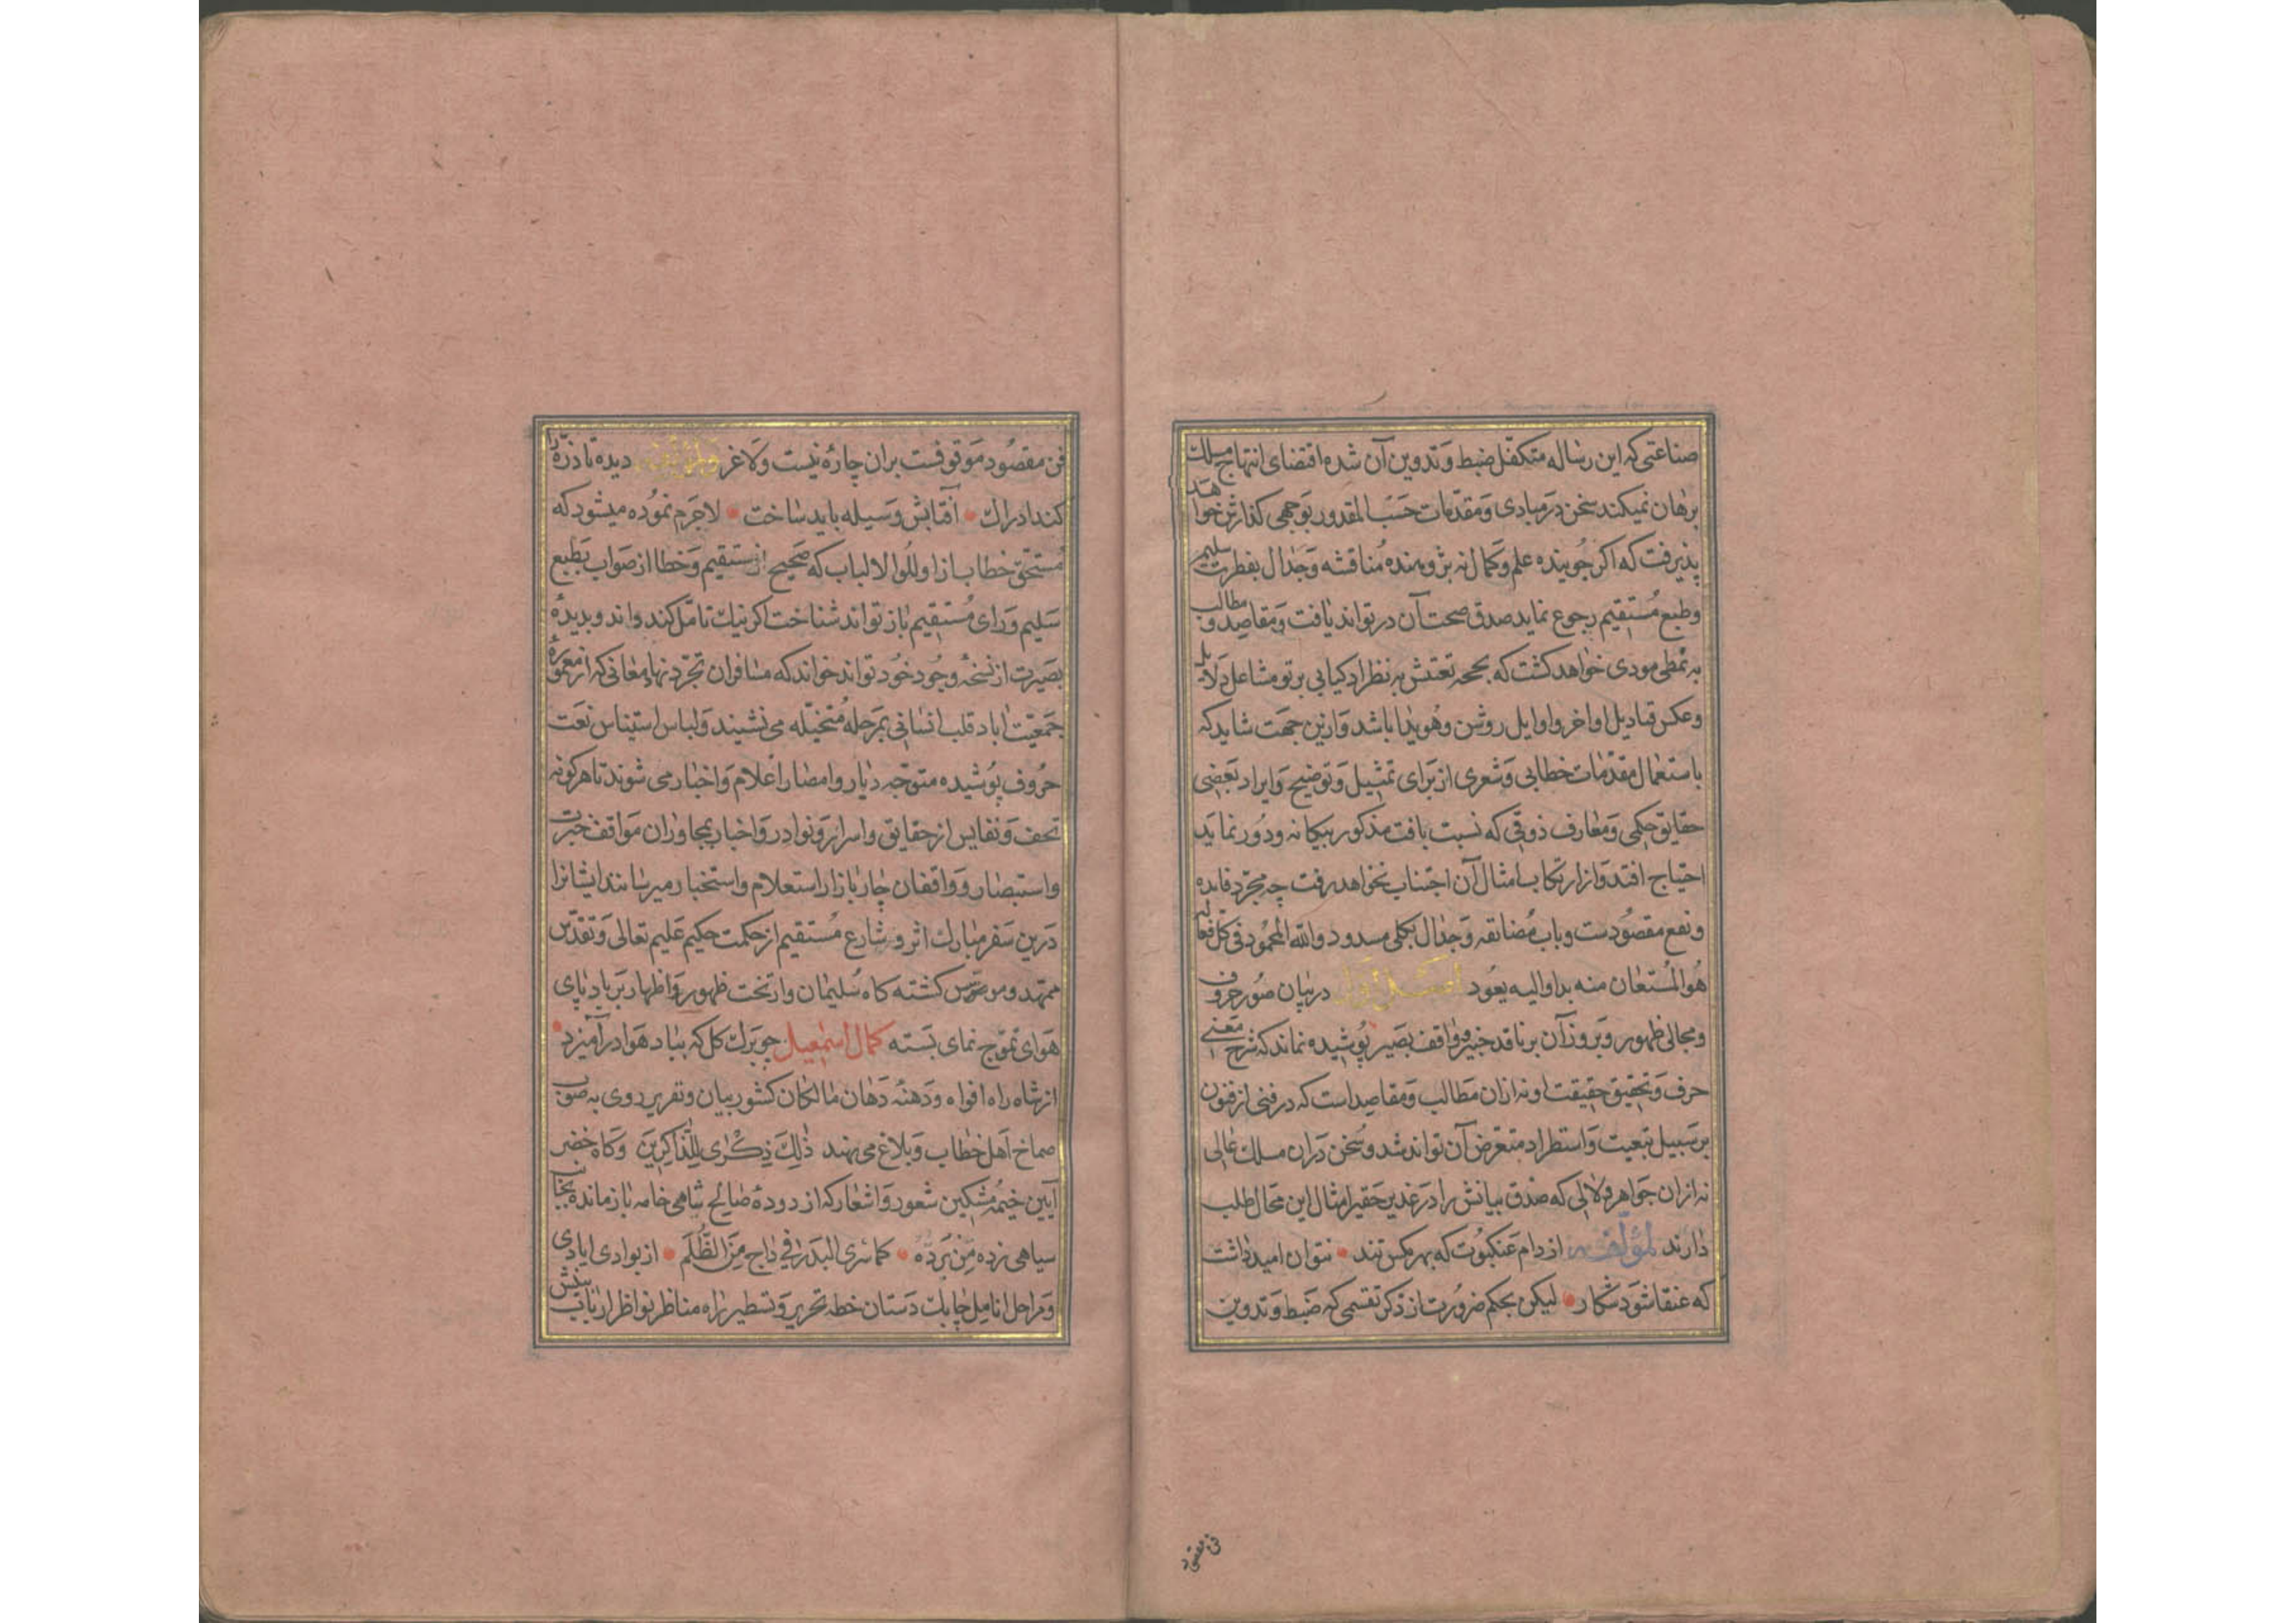 صناعتی که این رساله متکفل ضبط و تدوین آن شده اقتضای انتهاج مسلک
برهان نمیکند سخن در مبادی و مقدمات حسب المقدور بوجهی گذارش خواهد
پذیرفت که اگر جوینده علم و کمال نه پژوهنده مناقشه و جدال بفطرت سلیم
و طبع مستقیم رجوع نماید صدق صحت آن در تواند یافت و مقاصد و مطالب
به نمطی مودی خواهد گشت که بر نظر اذکیا بی پرتو مشاعل دلایل
و عکس قنادیل اواخر و اوایل روشن و هویدا باشد و ازین جهت شاید که
باستعمال مقدمات خطابی و شعری از برای تمثیل و توضیح و ایراد بعضی
حقایق حکمی و معارف ذوقی که نسبت بافت مذکور بیکانه و دور نماید
احتیاج افتد و از ارتکاب امثال آن اجتناب نخواهد رفت چه مجرد فایده
و نفع مقصودست و باب مضایقه و جدال بکلی مسدود والله المحمود فی کل فعاله
هو المستعان منه بدا والیه یعود اصل اول در بیان صور حروف
و مجالی ظهور و بروز آن بر ناقد خبیر و واقف بصیر پوشیده نماند که شرح معنی
حرف و تحقیق حقیقت او نه ازان مطالب و مقاصد است که در فنی از فنون
بر سبیل تبعیت و استطراد متعرض آن تواند شد و سخن دران مسلک عالی
نه ازان جواهر و لالی که صدق بیانش را در غدیر حقیر امثال این محال طلب
دارند لمؤلفه از دام عنکبوت که بهر مگس تنند • نتوان امید داشت
که عنقا شود شکار • لیکن بحکم ضرورت از ذکر تقسمی که ضبط و تدوین
فن مقصود
فن مقصود موقوفست بران چاره نیست ولا غرو دیده تا ذره را
کند ادراک • آفتابش وسیله باید ساخت • لاجرم نموده میشود که
مستحق خطاب از اولوا الالباب که صحیح از سقیم و خطا از صواب بطبع
سلیم و رای مستقیم باز تواند شناخت اگر نیک تامل کند داند و بدیده
بصیرت از نسخه وجود خود تواند خواند که مسافران تجرد نهاد معانی که از معموره
جمعیت اباد قلب انسانی بمرحله متخیله می نشیند و لباس استیناس نعت
حروف پوشیده متوجه دیار و امصار اعلام و اخبار می شوند تا هر گونه
تحف و نفایس از حقایق و اسرار و نوادر و اخبار بمجاوران مواقف خبرت
و استبصار و واقفان چار بازار استعلام و استخبار میرسانند ایشانرا
درین سفر مبارک اثر و شارع مستقیم از حکمت حکیم علیم تعالی و تقدس
ممهد و موسس گشته گاه سلیمان وار تخت ظهور و اظهار بر باد پای
هوای تموج نمای بسته کمال اسمعیل چو برگ گل که بباد هوا در آمیزد •
از شاه راه افواه و دهنه دهان مالکان کشور بیان و تقریر روی به صوب
صماخ اهل خطاب و بلاغ می نهند ذلِكَ ذِكْرَى لِلذَّاكِرِينَ و گاه خضر
آیین خیمه مشکین شعور و اشعار که از دوده صالح شامی خامه باز مانده بجانب
سیاهی زده من برده • کما تری البدر فی داج من الظلم • از بوادی ایادی
و مراحل انامل چابک دستان خطه تحریر و تسطیر راه مناظر نواظر ارباب بینش